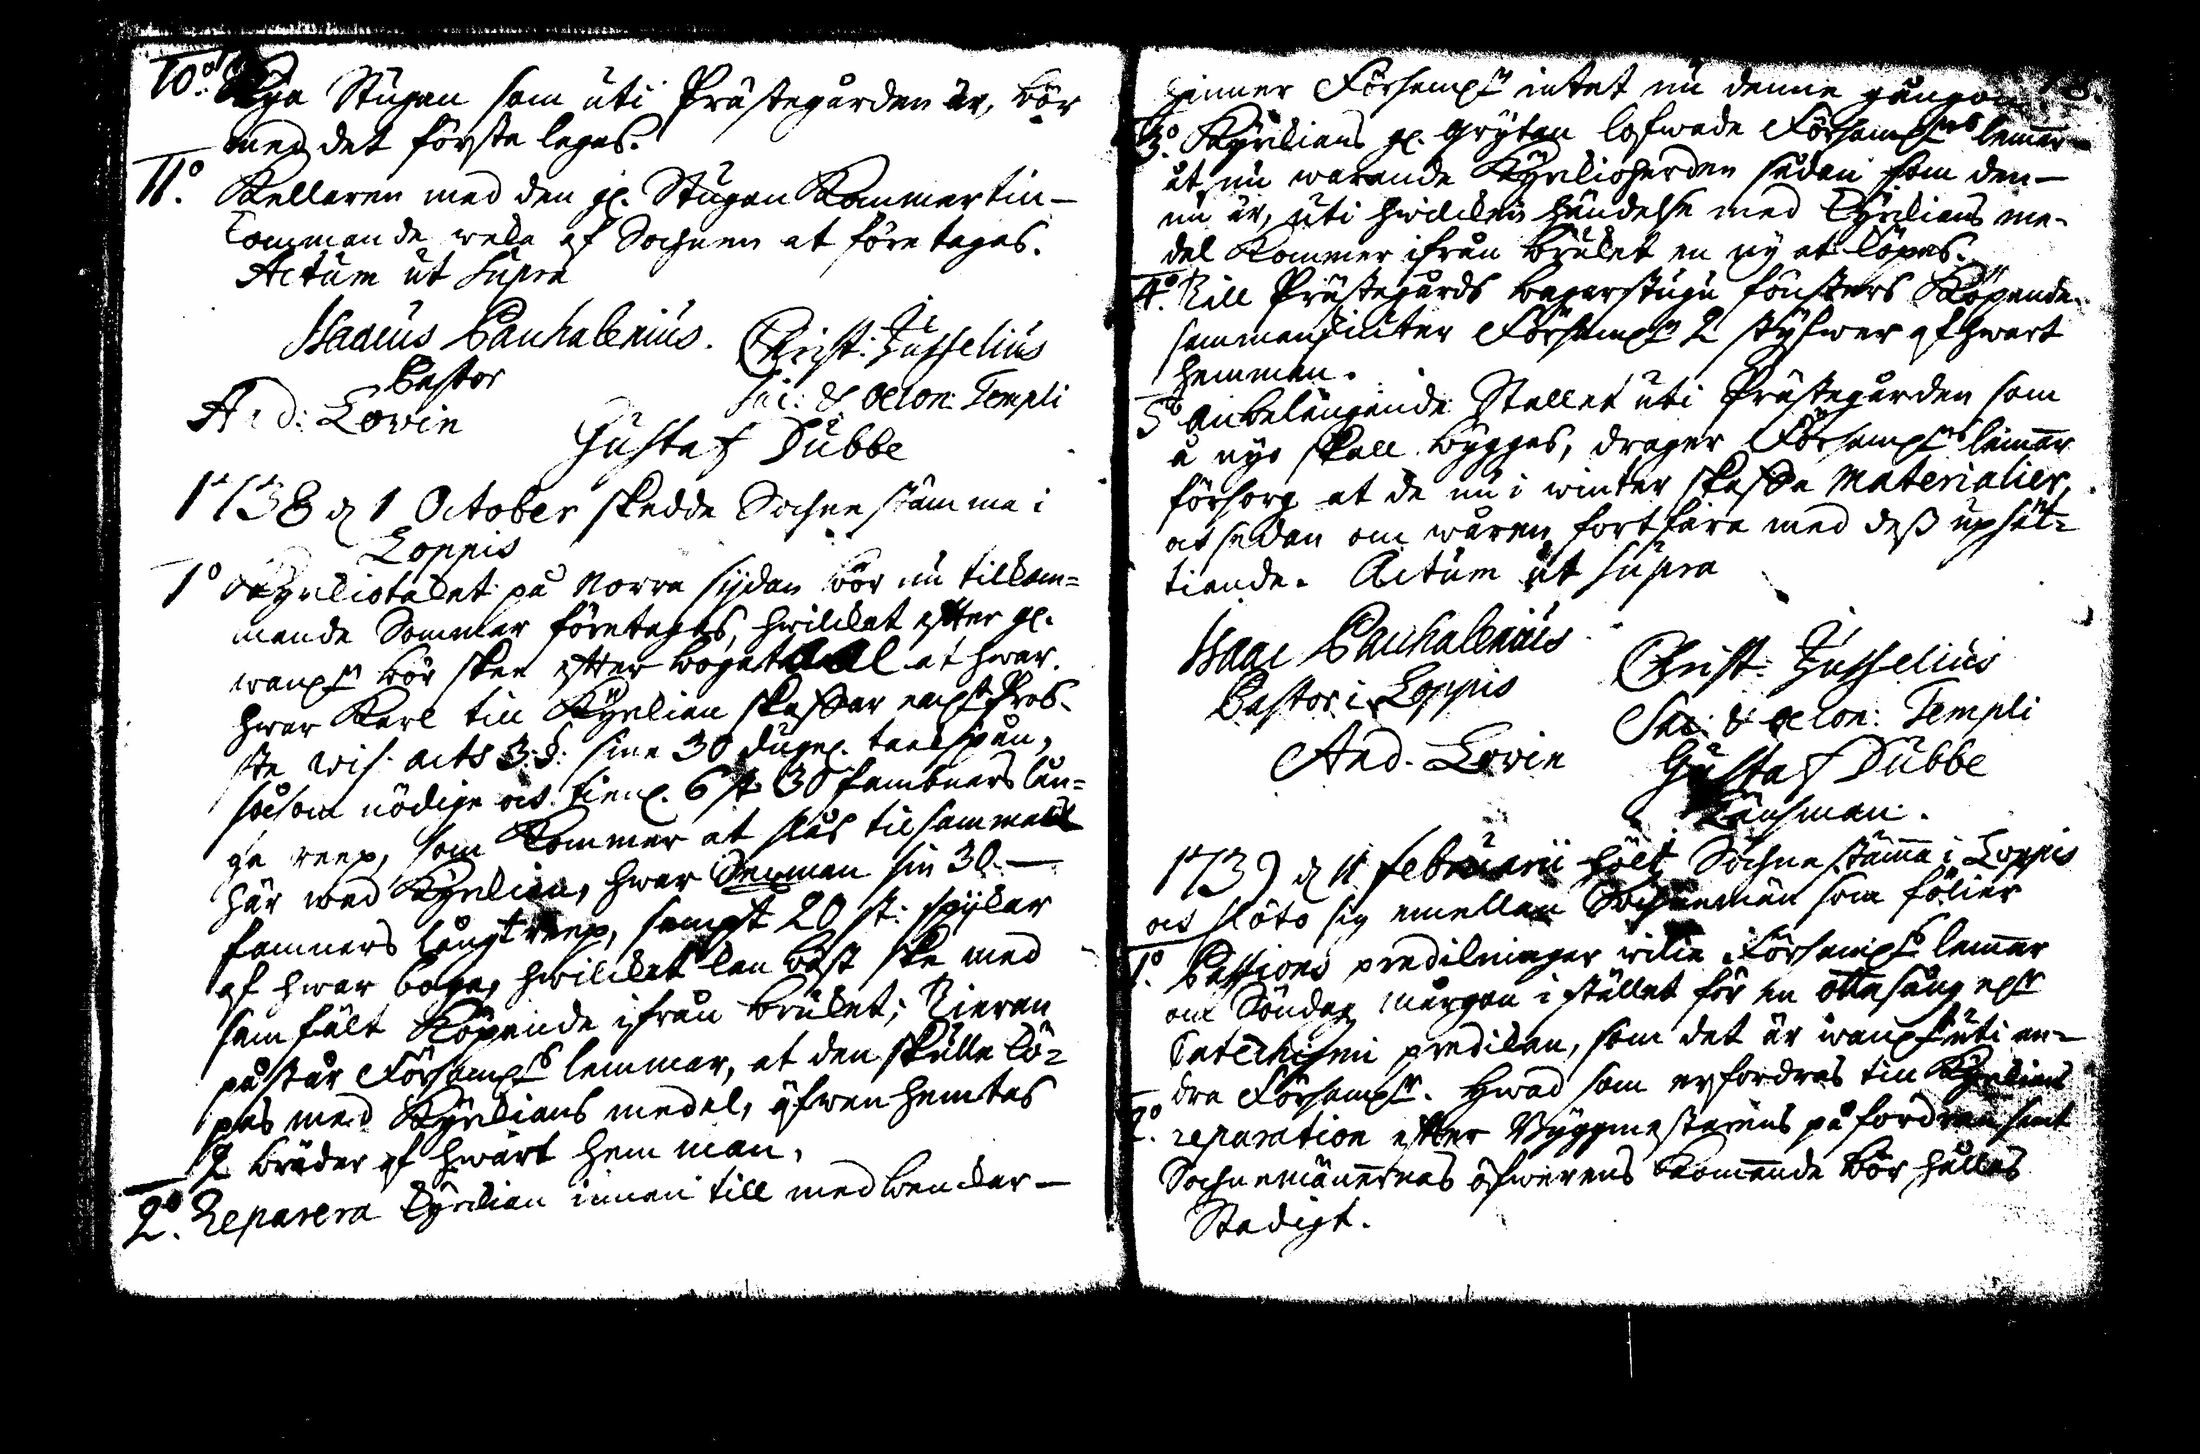 10:o Nya Stugan som uti Prästegården är, bör
med det första lagas.
11o. Kellaren med den gl. Stugan Kommer tin-
kommande wåla af Sochnen at företagas.
Actum ut supra
Isaacus Pauhalenius.
Pastor
Christ: Jusselius
Sac: & oecon: Templi
And: Lovin
Gustaf Dubbe
1738 d 1 October skedde Sochnestämma i
Loppis
1o Kyrkiotaket på Norra sijdan bör nu tilkom=
mande Sommar företagas, hwilket efter gl.
wanl:n bör skee efter bogatahl at hwar.
hwar Karl till Kyrkian skaffar enl:t Pros-
ste Vis. acts 3. §. sine 30 dugel. taakspån,
såsom nödige oc tienl. 6 st 30 famnars lån=
ga reep, som Kommer at slås tilsammans
här wed Kyrkian, hwar Sexman sin 30-
famnars långt reep, sampt 20 st: spijkar
af hwar boga, hwilket kan bäst ske med
samfält Köpande ifrån bruket; Tieran
påstår Församl:s lemmar, at den skulle kö=
pas med Kyrkians medel, äfwen hemtas
2 bräder af hwart hemman,
2o. Reparera kyrkian innan till med benckar-
hinner Församl:n intet nu denne gången
3o. Kyrkians gl. Grytan lofwade Församl:ns lemar
åt nu warande Kyrkioherden sådan som den-
nu är, uti hwilken händelse med kyrkians me-
del Kommer ifrån bruket en ny at köpas.
4o. Till Prästegårds bagarstugu fönsters Köpande
sammanskiuter Församl:n 2 styfwer af hwart
hemman.
5o Anbelangande Stallet uti Prästegården som
å nyo skall byggas, drager Församl:ns lemar
försorg at de nu i winter skaffa Materialier,
oc sedan om wåren fortfara med dess upsät=
tiande. Actum ut supra
Isaac Pauhalenius
Pastor i Loppis
Christ: Jusselius
Sac: & oecon: Templi
And. Lovin
Gustaf Dubbe
Länsman.
1739 d 11 februarii hölt Sochnestäma i Loppis
oc slöto sig emellan Sochnemän som fölier
1o. Passions predikningar wilia Församl:s lemar
om Söndag morgon i stället för en ottesång el:r
Catechismi predikan, som det är wanl:t uti an-
dra Församl:r. Hwad som erfordras till Kyrkians
2o. reparation efter Byggmästarens påfordran samt
Sochnemänernas öfwerens komande bör hållas
Stadigt.